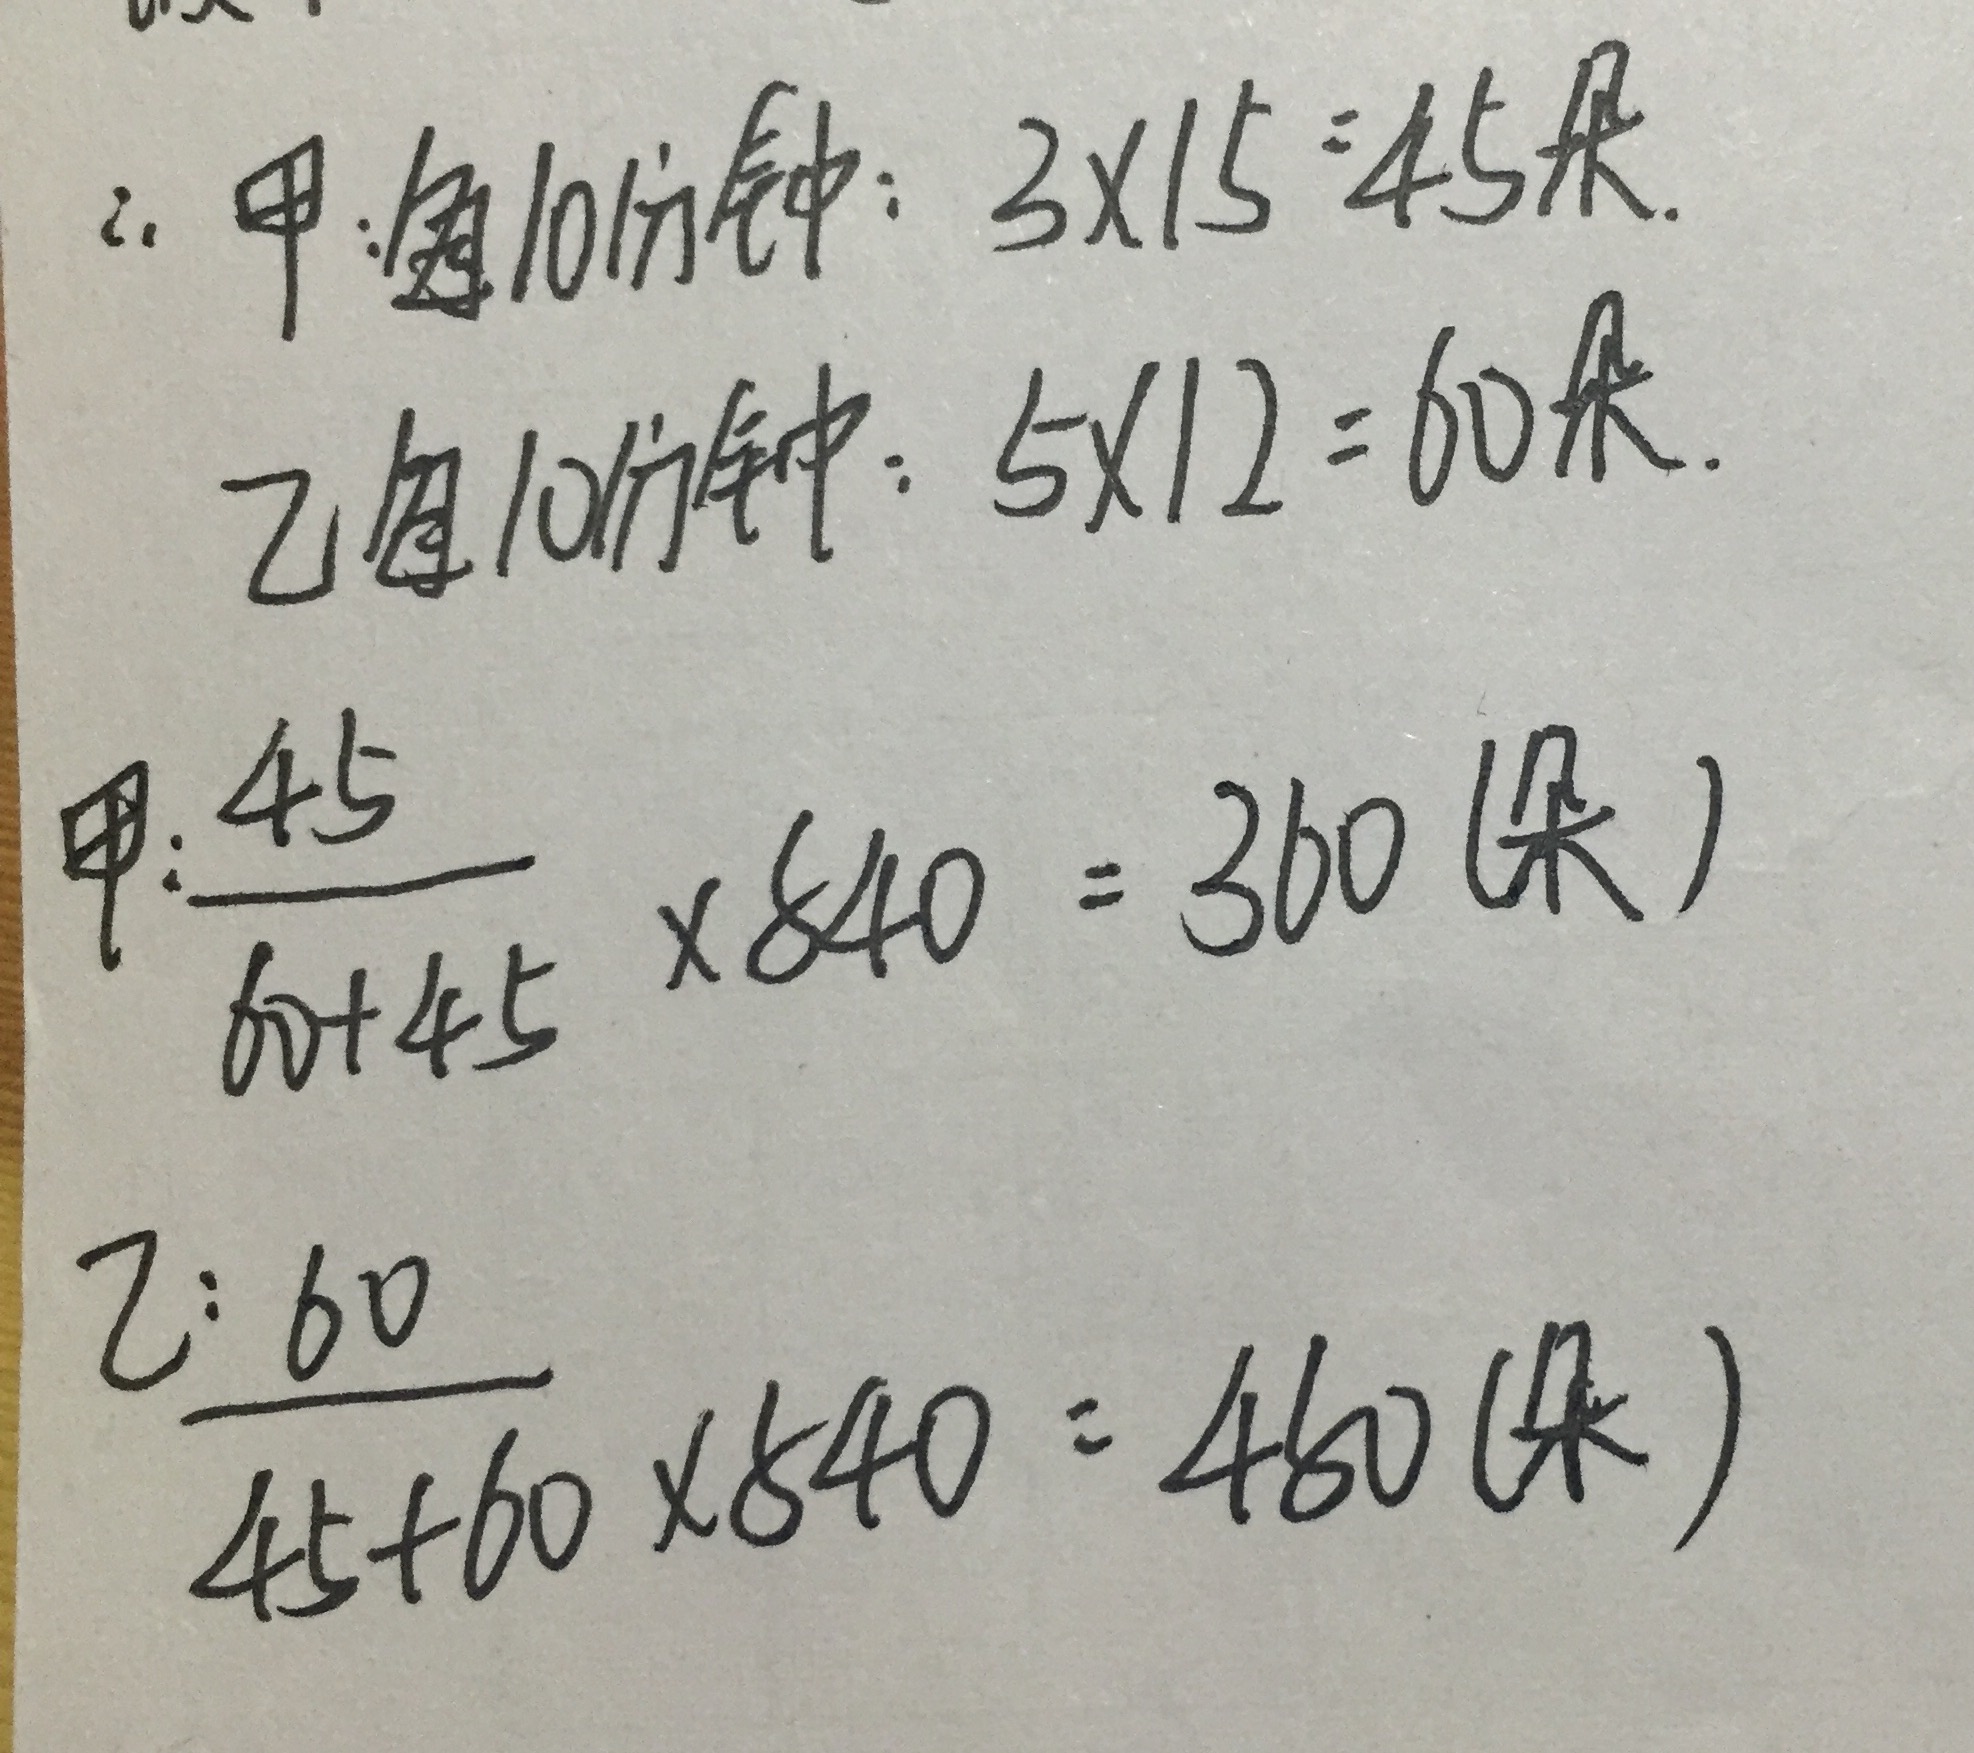 ∴ 甲:每10分钟: 3×15=45朵.
乙每10分钟: 5×12=60朵.
甲: 45/(60+45) ×840 = 360(朵)
乙: 60/(45+60) ×840 = 460(朵)